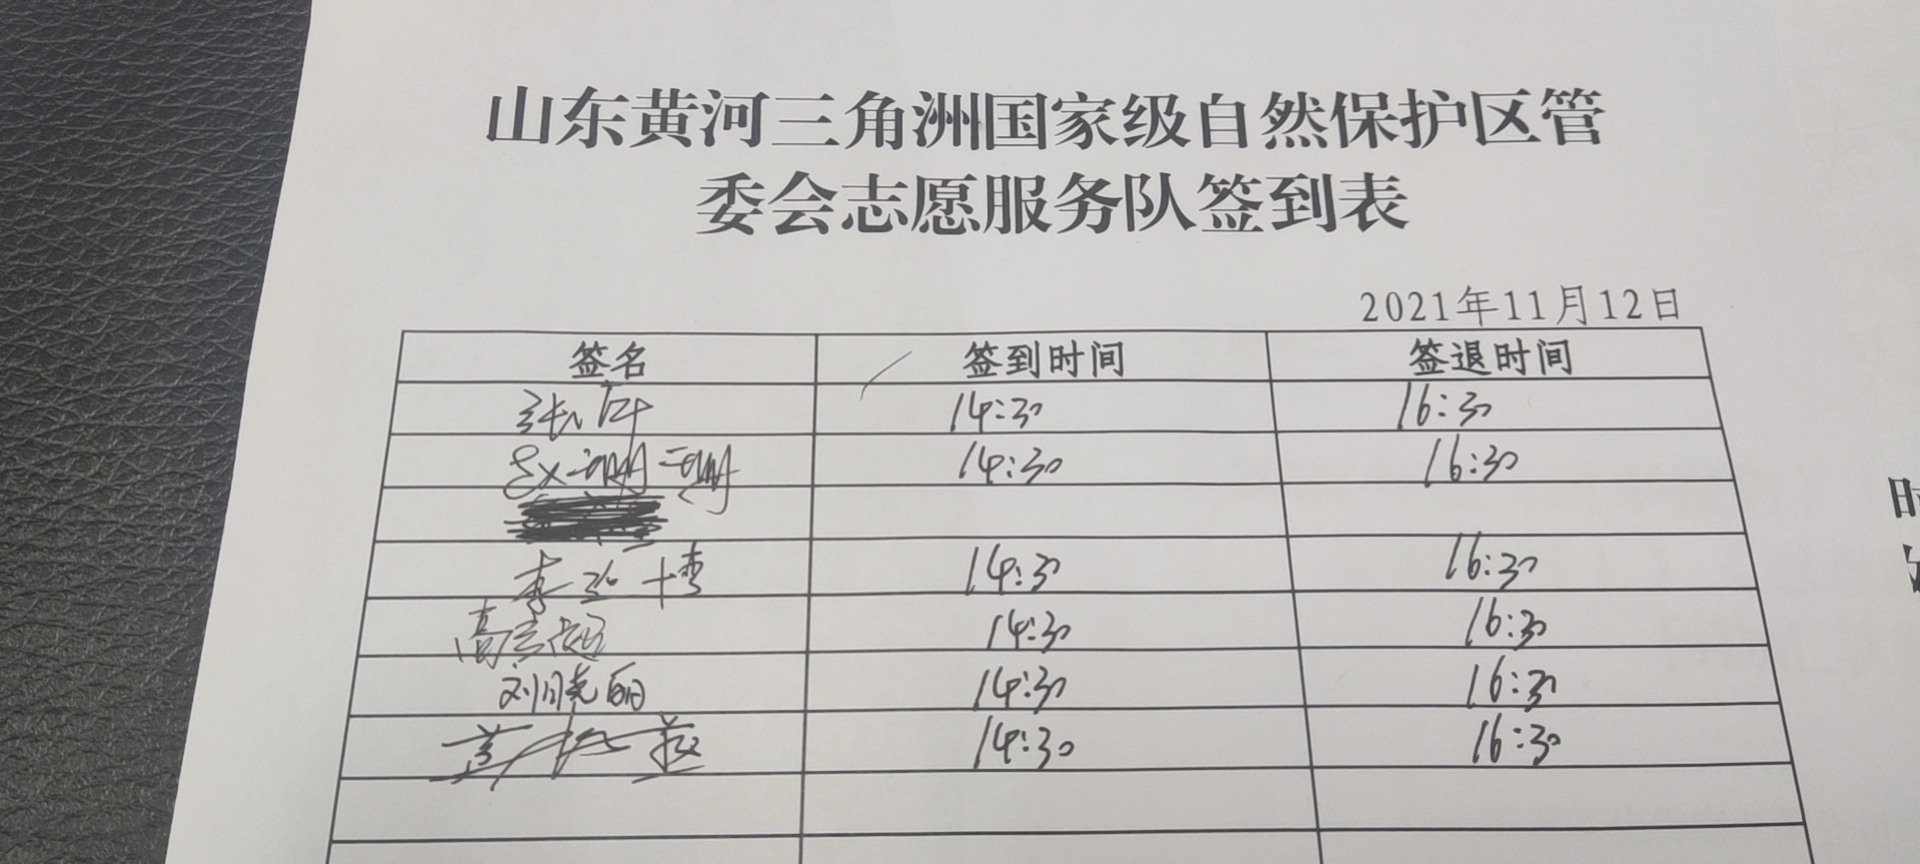 山东黄河三角洲国家级自然保护区管
委会志愿服务队签到表
2021年11月12日
签名 签到时间 签退时间
14:30 16:30
14:30 16:30
14:30 16:30
高志超 14:30 16:30
刘晓丽 14:30 16:30
14:30 16:30
时